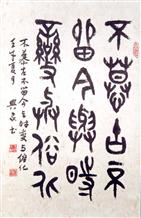 不慕古不
留今與時
變與俗化
不慕古不留今与時變与俗化
夏月
書